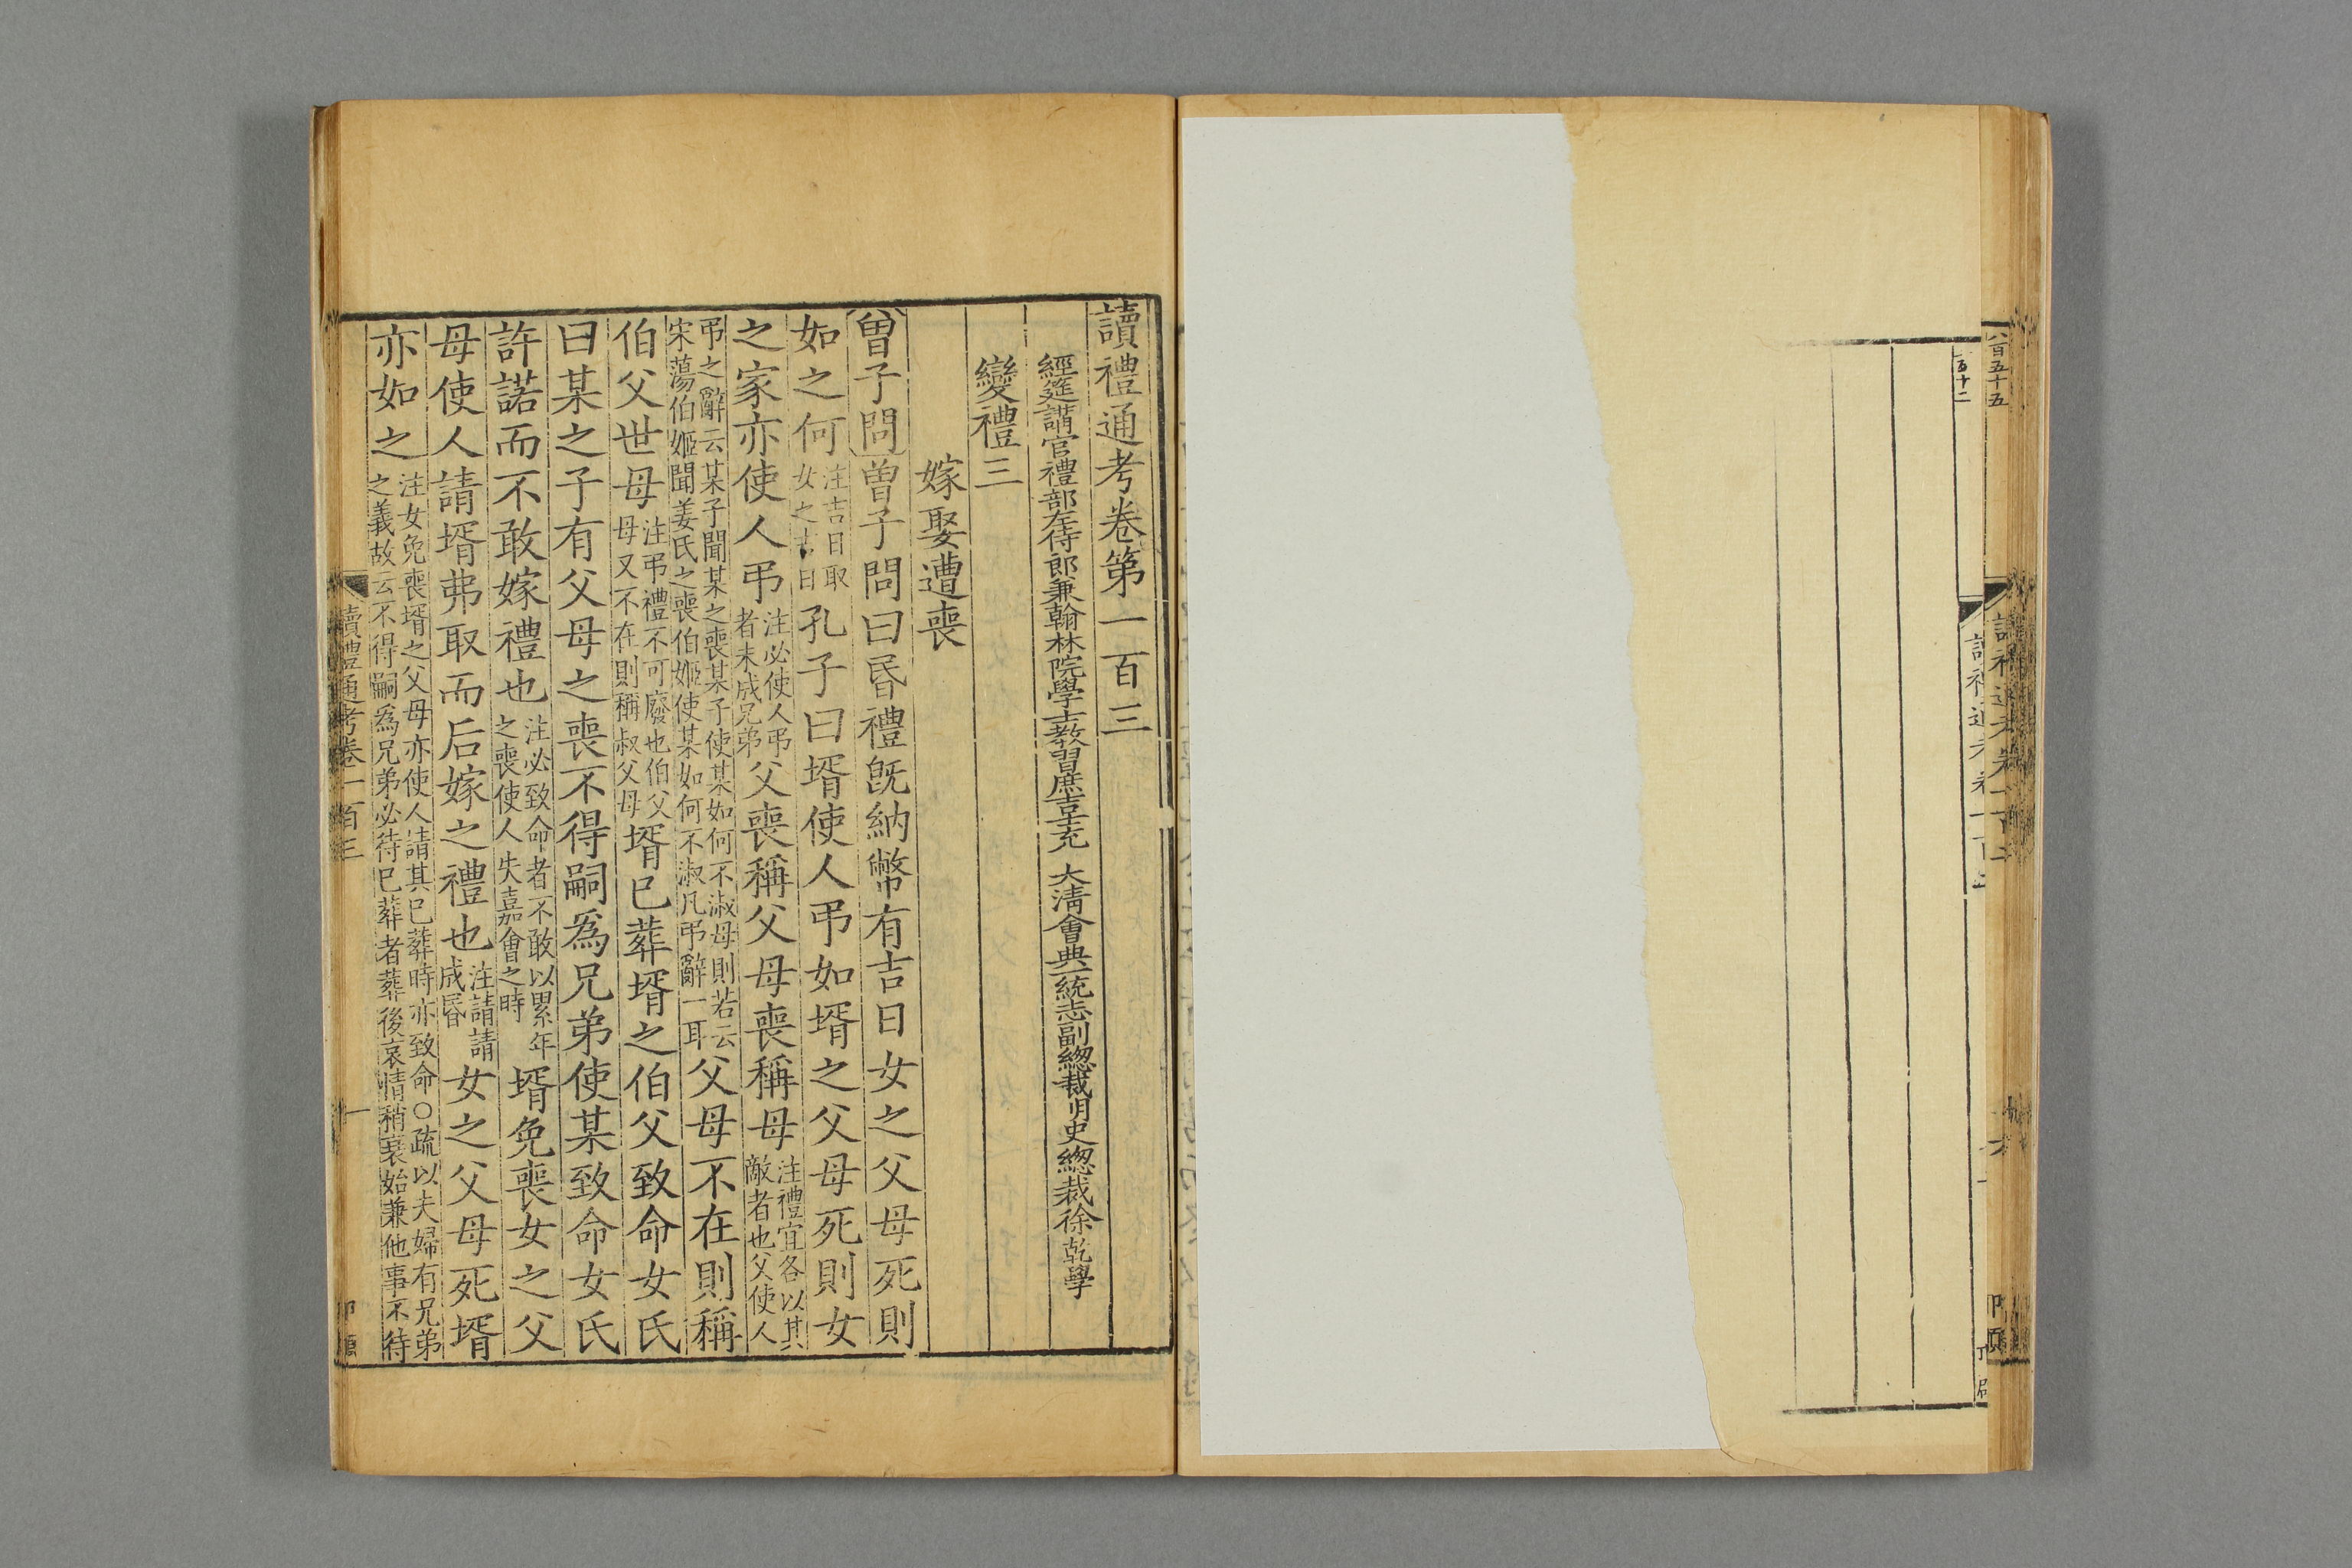 八百五十五
五十二
讀禮通考卷第一百三
經筵講官禮部左侍郎兼翰林院學士教習庶吉士充 大清會典一統志副總裁明史總裁徐乾學
變禮三
嫁娶遭喪
曾子問曾子問曰昏禮旣納幣有吉日女之父母死則
如之何注吉日取女之吉日孔子曰壻使人弔如壻之父母死則女
之家亦使人弔注必使人弔者未成兄弟父喪稱父母喪稱母注禮宜各以其敵者也父使人
弔之辭云某子聞某之喪某子使某如何不淑母則若云宋蕩伯姬聞姜氏之喪伯姬使某如何不淑凡弔辭一耳父母不在則稱
伯父世母注弔禮不可廢也伯父母又不在則稱叔父母壻已葬壻之伯父致命女氏
曰某之子有父母之喪不得嗣爲兄弟使某致命女氏
許諾而不敢嫁禮也注必致命者不敢以累年之喪使人失嘉會之時壻免喪女之父
母使人請壻弗取而后嫁之禮也注請請成昏女之父母死壻
亦如之注女免喪壻之父母亦使人請其已葬時亦致命○疏以夫婦有兄弟之義故云不得嗣爲兄弟必待已葬者葬後哀情稍衰始兼他事不待
讀禮通考卷一百三
一